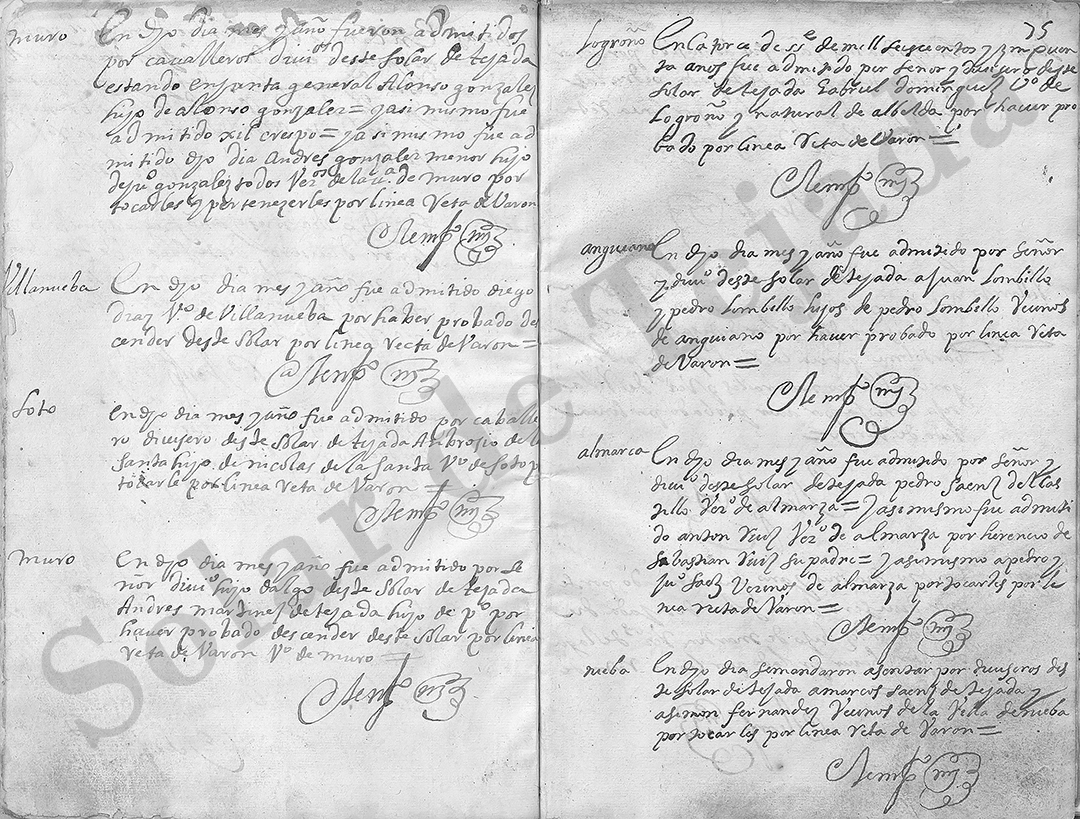 muro
En dho dia mes y año fueron admitidos
por cavalleros divisos deste solar de tejada
estando en junta general Alonso gonzalez
hijo de Alonso gonzalez = y asimismo fue
admitido xil crespo = y asimismo fue ad
mitido dho dia Andres gonzalez menor hijo
de juº gonzalez todos Vezºs de la Vª de muro por
tocarles y pertenezerles por linea Reta de Varon
Villanueba
En dho dia mes y año fue admitido diego
diaz Vº de Villanueba por haber probado des
cender deste solar por linea recta de Varon =
soto
en dho dia mes y año fue admitido por caballe
ro divisero deste solar de tejada Ambrosio de la
santa hijo de nicolas de la santa Vº de soto p
tocarle por linea reta de Varon =
muro
En dho dia mes y año fue admitido por se
nor diviº hijo dalgo deste solar de tejada
Andres martinez de tejada hijo de pº por
haver probado descender deste solar por linia
reta de Varon Vº de muro =
75
Logroño
En catorce de sse de mill seiscientos y zinquen
ta años fue admitido por señor y divisero deste
solar de tejada Gabriel dominguez Vº de
Logroño y natural de albelda por haver pro
bado por linea Reta de Varon =
anguiano
En dho dia mes y año fue admitido por señor
y diviº deste solar de tejada a Juan Lombillo
y pedro Lombello hijos de pedro Lombello Vecinos
de anguiano por haver probado por linea reta
de Varon =
almarca
En dho dia mes y año fue admitido por señor y
diviº deste solar de tejada pedro saenz del cas
tillo Vezº de almarza = y asimismo fue admiti
do anton Ruiz Vezº de almarza por herencio de
sebastian Ruiz su padre = y asimismo a pedro y
juº saez Vecinos de almarza por tocarles por li
nea recta de Varon =
nieba
En dho dia se mandaron asentar por diviseros des
te solar de tejada a marcos saenz de tejada y
a simon fernandez Vecinos de la Villa de nieba
por tocarles por linea reta de Varon =
Solar de Tejada